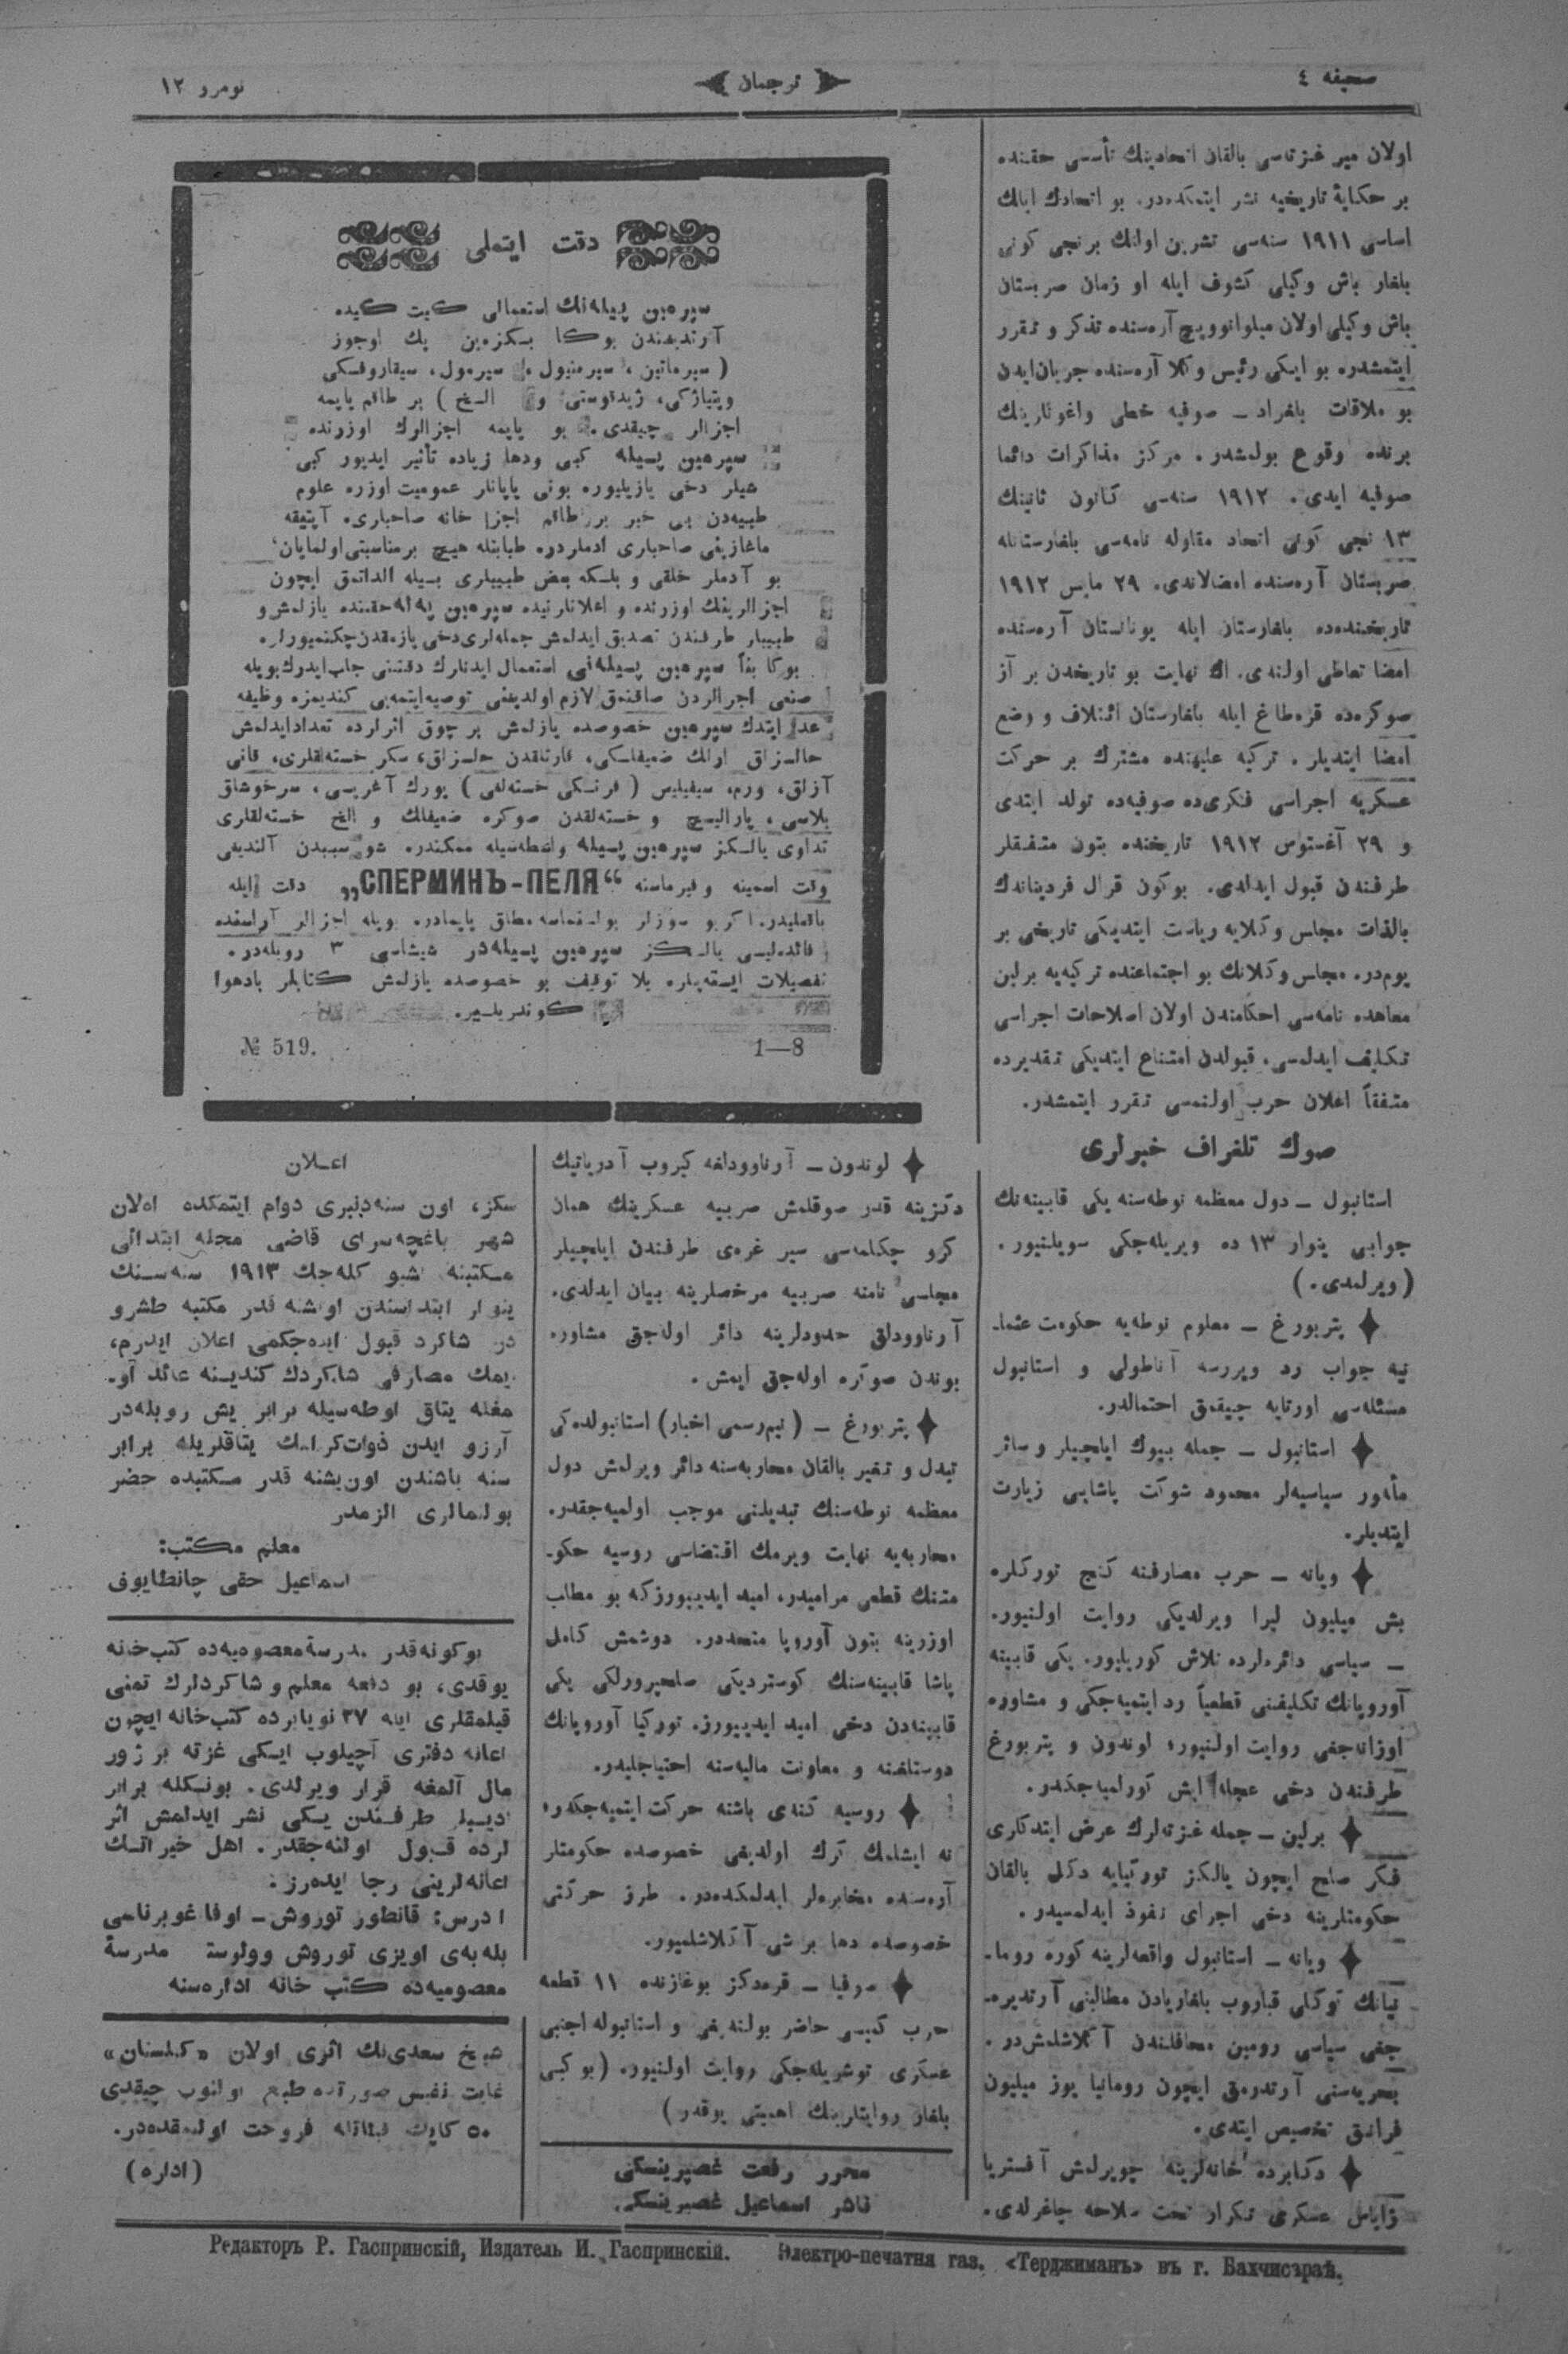 صحیفه ٤
ترجمان
نومرو ١٢
اولان میر غزتاسی بالقان اتحادینك تأسسی حقنده
بر حکایهٔ تاریخیه نشر ایتمکده‌در. بو اتحادك ایلك
اساسی ١٩١١ سنه‌سی تشرین اولنك برنجی کونی
بلغار باش وکیلی کشوف ایله او زمان صربستان
باش وکیلی اولان میلوانوویچ آره‌سنده تذکر و تقرر
ایتمشدر. بو ایکی رئیس وکلا آره‌سنده جریان ایدن
بو ملاقات بلغراد ــ صوفیه خطی واغونارینك
برنده وقوع بولمشدر. مرکز مذاکرات دائما
صوفیه ایدی. ١٩١٢ سنه‌سی کانون ثانینك
١٣ نجی کونی اتحاد مقاوله نامه‌سی بلغارستانله
صربستان آره‌سنده امضالاندی. ٢٩ مایس ١٩١٢
تاریخنده‌ده بلغارستان ایله یونانستان آره‌سنده
امضا تعاطی اولندی. اك نهایت بو تاریخدن بر آز
صوکره‌ده قره‌طاغ ایله بلغارستان ائتلاف و وضع
امضا ایتدیلر. ترکیه علیهنده مشترك بر حرکت
عسکریه اجراسی فکری‌ده صوفیه‌ده تولد ایتدی
و ٢٩ آغستوس ١٩١٢ تاریخنده بتون متفقلر
طرفندن قبول ایدلدی. بوکون قرال فردیناندك
بالذات مجلس وکلایه ریاست ایتدیکی تاریخی بر
یوم‌در. مجلس وکلانك بو اجتماعنده ترکیه‌یه برلین
معاهده نامه‌سی احکامندن اولان اصلاحات اجراسی
تکلیف ایدلمسی، قبولدن امتناع ایتدیکی تقدیرده
متفقاً اعلان حرب اولنمسی تقرر ایتمشدر.
صوك تلغراف خبرلری
استانبول ــ دول معظمه نوطه‌سنه یکی قابینه‌نك
جوابی ینوار ١٣ ده ویریله‌جکی سویلنیور.
(ویرلمدی.)
پتربورغ ــ معلوم نوطه‌یه حکومت عثما‌ـ
نیه جواب رد ویررسه آناطولی و استانبول
مسئله‌سی اورتایه چیقمق احتمالدر.
استانبول ــ جمله بیوك ایلچیلر و سائر
مأمور سیاسیه‌لر محمود شوکت پاشایی زیارت
ایتدیلر.
ویانه ــ حرب مصارفنه کنج تورکلره
بش میلیون لیرا ویرلدیکی روایت اولنیور.
ــ سیاسی دائره‌لرده تلاش کوریلیور. یکی قابینه
آوروپانك تکلیفنی قطعیاً رد ایتمیه‌جکی و مشاوره
اوزانه‌جغی روایت اولنیور، لوندون و پتربورغ
طرفندن دخی عجله ایش کورلمیه‌جکدر.
برلین ــ جمله غزته‌لرك عرض ایتدکاری
فکر صلح ایچون یالکز تورکیایه دکل بالقان
حکومتلرینه دخی اجرای نفوذ ایدلمسیدر.
ویانه ــ استانبول واقعه‌لرینه کوره روما‌ـ
نیانك توکلی قباروب بلغاریادن مطالبنی آرتدیره‌ـ
جغی سیاسی رومین محافلندن آکلاشلمش‌در.
بحریه‌سنی آرتدرمق ایچون رومانیا یوز میلیون
فرانق تخصیص ایتدی.
دکابرده خانه‌لرینه چویرلمش آفستریا
زاپاس عسکری تکرار تحت سلاحه چاغرلدی.
دقت ایتملی
سپرمین پیله‌نك استعمالی کیت کیده
آرتدیغندن بوکا بکزه‌ین پك اوجوز
( سپرماتین، سپرمنیول، سپرمول، سیقاروفسکی
اجزالر چیقدی. بو یایمه اجزالرك اوزرنده
سپرمین پسیله کبی ودها زیاده تأثیر ایدیور کبی
شیلر دخی یازیلیور. بونی یاپانلر عمومیت اوزره علوم
طبیه‌دن بی خبر بر طاقم اجزا خانه صاحباری، آپتیقه
ماغازینی صاحباری ادملردر. طبابتله هیچ بر مناسبتی اولمایان
بو آدملر خلقی و بلکه بعض طبیبلری بیله الداتمق ایچون
اجزالرینك اوزرنده و اعلانارنیده سپرمین پله حقنده یازلمش و
طبیبلر طرفندن تصدیق ایدلمش جمله‌لری دخی یازمقدن چکنمیورلر.
بوکا بناً سپرمین پسیله‌نی استعمال ایدنارك دقتنی جلب ایدرك بویله
صنعی اجزالردن صاقنمق لازم اولدیغنی توصیه ایتمه‌یی کندیمزه وظیفه
عد ایتدك سپرمین خصوصده یازلمش بر چوق اثرلرده تعداد ایدلمش
حالسزاق ارلك ضعیفلکی، قارتلقدن حالسزلق، سکر خسته‌لقلری، قانی
آزلق، ورم، سیفیلیس ( فرنکی خسته‌لغی ) یورك آغریسی، سرخوشلق
بلاسی، پارالیچ و خسته‌لقدن صوکره ضعیفلك و الخ خسته‌لقلری
تداوی یالکز سپرمین پسیله واسطه‌سیله ممکندر. شو سببدن آلندیغی
وقت اسمینه و فیرماسنه „СПЕРМИНЪ-ПЕЛЯ“ دقت ایله
باقملیدر. اکر بو سوزلر بولنمماسه مطلق یایمادر. بویله اجزالر آراسنده
فائده‌لیسی یالکز سپرمین پسیله‌در شیشاسی ٣ روبله‌در.
تفصیلات ایسته‌یلره بلا توقیف بو خصوصده یازلمش کتابلر بادهوا
کوندریلیر.
№ 519.
1—8
لوندون ــ آرناوودلغه کیروب آدریاتیك
دکزینه قدر صوقلمش صربیه عسکرینك همان
کرو چکلمه‌سی سیر غره‌ی طرفندن ایلچیلر
مجلسی نامنه صربیه مرخصلرینه بیان ایدلدی.
آرناوودلق حدودلرینه دائر اوله‌جق مشاوره
بوندن صوکره اوله‌جق ایمش.
پتربورغ ــ (نیم‌رسمی اخبار) استانبولده‌کی
تبدل و تغیر بالقان محاربه‌سنه دائر ویرلمش دول
معظمه نوطه‌سنك تبدیلنی موجب اولمیه‌جقدر.
محاربه‌یه نهایت ویرمك اقتضاسی روسیه حکو‌ـ
متنك قطعی مرامیدر، امید ایدییورزکه بو مطلب
اوزرینه بتون آوروپا متحددر. دوشمش کامل
پاشا قابینه‌سنك کوستردیکی صلحپرورلکی یکی
قابینه‌دن دخی امید ایدییورز. تورکیا آوروپانك
دوستلغنه و معاونت مالیه‌سنه احتیاجلیدر.
روسیه کندی باشنه حرکت ایتمیه‌جکدر،
نه ایشلمك کرك اولدیغی خصوصده حکومتلر
آره‌سنده مخابره‌لر ایدلمکده‌در. طرز حرکتی
خصوصده دها بر شی آکلاشلمیور.
صوفیا ــ قره‌دکز بوغازنده ١١ قطعه
حرب کمیسی حاضر بولندیغی و استانبوله اجنبی
عسکری توشریله‌جکی روایت اولنیور. (بو کبی
بلغار روایتلرینك اهمیتی یوقدر)
محرر رفعت غصپرینسکی
ناشر اسماعیل غصپرینسکی
اعلان
سکز، اون سنه‌دنبری دوام ایتمکده اولان
شهر باغچه‌سرای قاضی محله ابتدائی
مکتبنه اشبو کله‌جك ١٩١٣ سنه‌سنك
ینوار ابتداسندن اونشه قدر مکتبه طشرو
دن شاکرد قبول ایده‌جکمی اعلان ایدرم،
یمك مصارفی شاکردك کندیسنه عائد آو‌ـ
مغله یتاق اوطه‌سیله برابر یش روبله‌در
آرزو ایدن ذوات کرامك یتاقلریله برابر
سنه باشندن اون‌بشنه قدر مکتبده حضر
بولنمالری الزمدر
معلم مکتب:
اسماعیل حقی چانطایوف
بوکونه قدر مدرسهٔ معصومیه‌ده کتب‌خانه
یوقدی، بو دفعه معلم و شاکردلرك تمنی
قیلمقلری ایله ٢٧ نویابرده کتب‌خانه ایچون
اعانه دفتری آچیلوب ایکی غزته بر ژور
مال آلمغه قرار ویرلدی. بونکله برابر
ادیبلر طرفندن یکی نشر ایدلمش اثر
لرده قبول اولنه‌جقدر. اهل خیراتك
اعانه‌لرینی رجا ایده‌رز.
ادرس: قانطور توروش ــ اوفا غوبرناسی
بله‌به‌ی اویزی توروش وولوست مدرسهٔ
معصومیه‌ده کتب خانه اداره‌سنه
شیخ سعدی‌نك اثری اولان «کلستان»
غایت نفیس صورتده طبع اولنوب چیقدی
٥٠ کاپك فیئاتله فروخت اولنمقده‌در.
(اداره)
Редакторъ Р. Гаспринскій, Издатель И. Гаспринскій. Электро-печатня газ. «Терджиманъ» въ г. Бахчисараѣ.